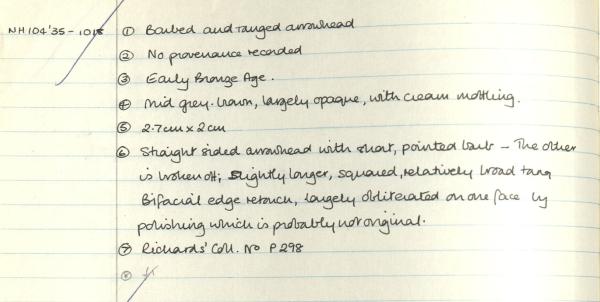 NH104'35-1018 ① Barbed and tanged arrowhead
② No provenance recorded
③ Early Bronze Age.
④ Mid grey-brown, largely opaque, with cream mottling.
⑤ 2.7cm x 2cm
⑥ Straight sided arrowhead with short, pointed barb - The other
is broken off; slightly longer, squared, relatively broad tang
Bifacial edge retouch, largely obliterated on one face by
polishing which is probably not original.
⑦ Richards' Coll. No P298
⑧